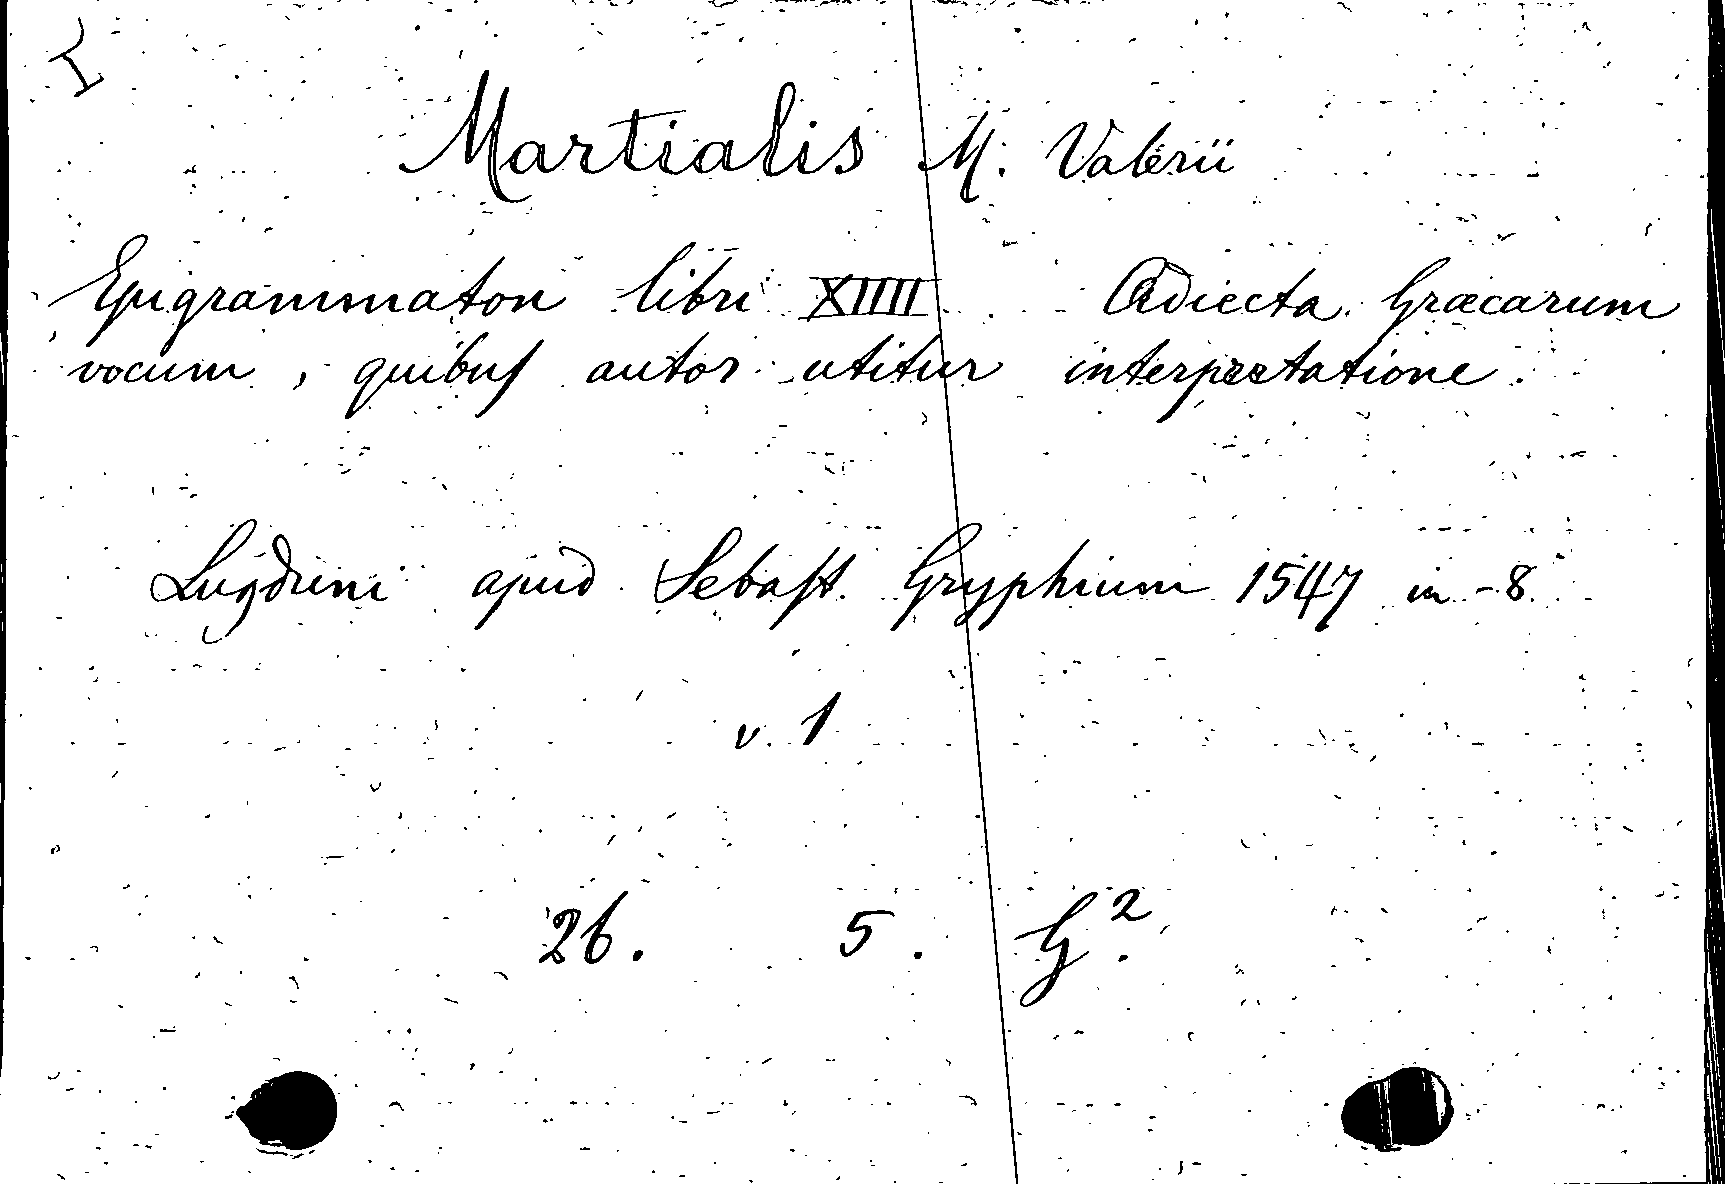 I
Martialis M. Valerii
Epigrammaton libri XIIII Adiecta Græcarum
vocum, quibus autor utitur interpretatione.
Lugduni apud Sebast. Gryphium 1547 in-8
v. 1
26. 5. G².